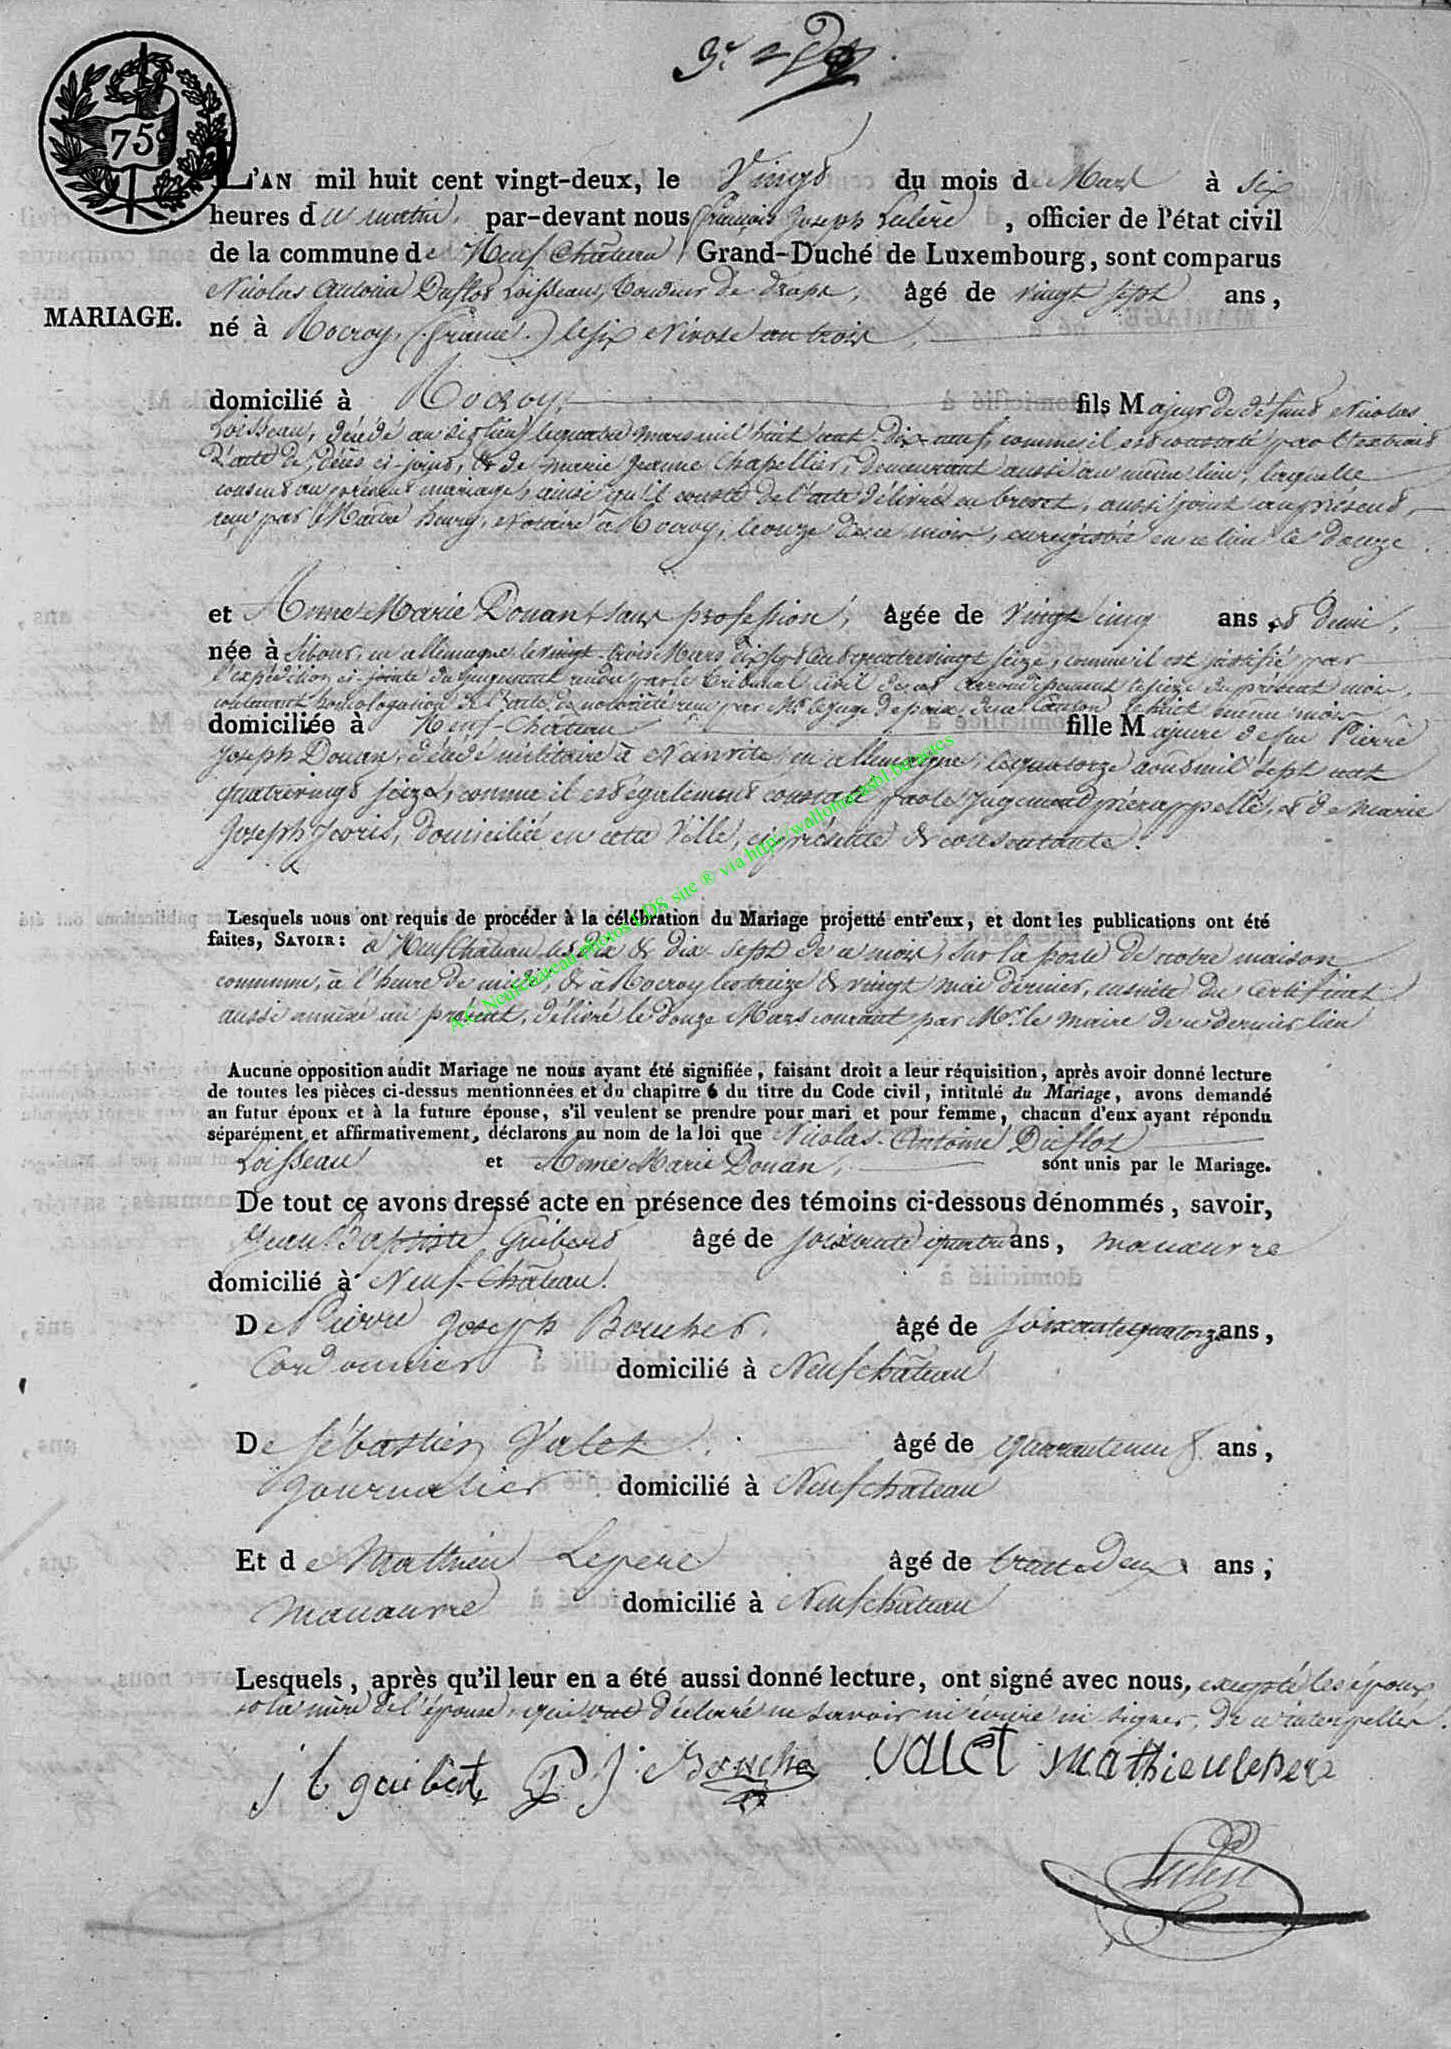 75c
L'AN mil huit cent vingt-deux, le Vingt du mois de Mars à six
heures du matin, par-devant nous François Joseph , officier de l'état civil
de la commune de Neufchâteau Grand-Duché de Luxembourg, sont comparus
Nicolas Antoine Duflot Loisseau, tondeur de draps, âgé de vingt sept ans,
MARIAGE.
né à Rocroy, (france) le six Nivose an trois,
domicilié à Rocroy, fils Majeur de défunt Nicolas
Loisseau, décédé au dit lieu le quatre mars mil huit cent dix neuf, comme il est constaté par l'extrait
d'acte de décès ci-joint, & de marie Jeanne Chapellier, demeurant aussi au même lieu, laquelle
consent au présent mariage, ainsi qu'il conste de l'acte délivré en brevet, aussi joint au présent,
reçu par Maître henry, Notaire à Rocroy, le onze de ce mois, enregistré en ce lieu le douze.
et Anne Marie Douan, sans profession, âgée de vingt cinq ans et demi,
née à en allemagne le vingt trois Mars dix sept cent quatrevingt seize, comme il est justifié par
l'expédition ci-jointe du jugement rendu par le tribunal civil de cet arrondissement le seize du présent mois,
contenant homologation de l'acte de notoriété reçu par Mr le juge de paix de ce Canton le huit même mois
domiciliée à Neuf-Château fille Majeure de feu Pierre
Joseph Douan, décédé militaire à en allemagne, le quatorze aout mil sept cent
quatrevingt seize, comme il est également constaté par le Jugement prérappellé, et de Marie
Joseph Joris, domiciliée en cette Ville, ci présente & consentante.
Lesquels nous ont requis de procéder à la célébration du Mariage projetté entr'eux, et dont les publications ont été
faites, SAVOIR: à Neufchâteau les dix & dix-sept de ce mois, sur la porte de notre maison
commune, à l'heure de midi, & à Rocroy les treize & vingt mai dernier, ensuite du Certificat
aussi annexé au présent, délivré le douze Mars courant par Mr. le maire de ce dernier lieu
A.C. Neufchateau-photos LDS site ® via http://wallonia-asbl.be/actes
Aucune opposition audit Mariage ne nous ayant été signifiée, faisant droit a leur réquisition, après avoir donné lecture
de toutes les pièces ci-dessus mentionnées et du chapitre 6 du titre du Code civil, intitulé du Mariage, avons demandé
au futur époux et à la future épouse, s'il veulent se prendre pour mari et pour femme, chacun d'eux ayant répondu
séparément et affirmativement, déclarons au nom de la loi que Nicolas-Antoine Duflot
Loisseau et Anne Marie Douan, sont unis par le Mariage.
De tout ce avons dressé acte en présence des témoins ci-dessous dénommés, savoir,
Jean Baptiste Guibert âgé de soixante quatre ans, manœuvre
domicilié à Neuf-Château.
De Pierre Joseph Boucher, âgé de soixante quatorze ans,
Cordonnier domicilié à Neufchâteau
De Sébastien Valet âgé de quarante neuf ans,
journalier domicilié à Neufchâteau
Et de Mathieu Lepere âgé de trente deux ans;
manœuvre domicilié à Neufchâteau
Lesquels, après qu'il leur en a été aussi donné lecture, ont signé avec nous, excepté les époux
et la mère de l'épouse, qui ont déclaré ne savoir ni écrire ni signer, de ce interpellés.
j b guibert P J Bouche valet mathieu lepere